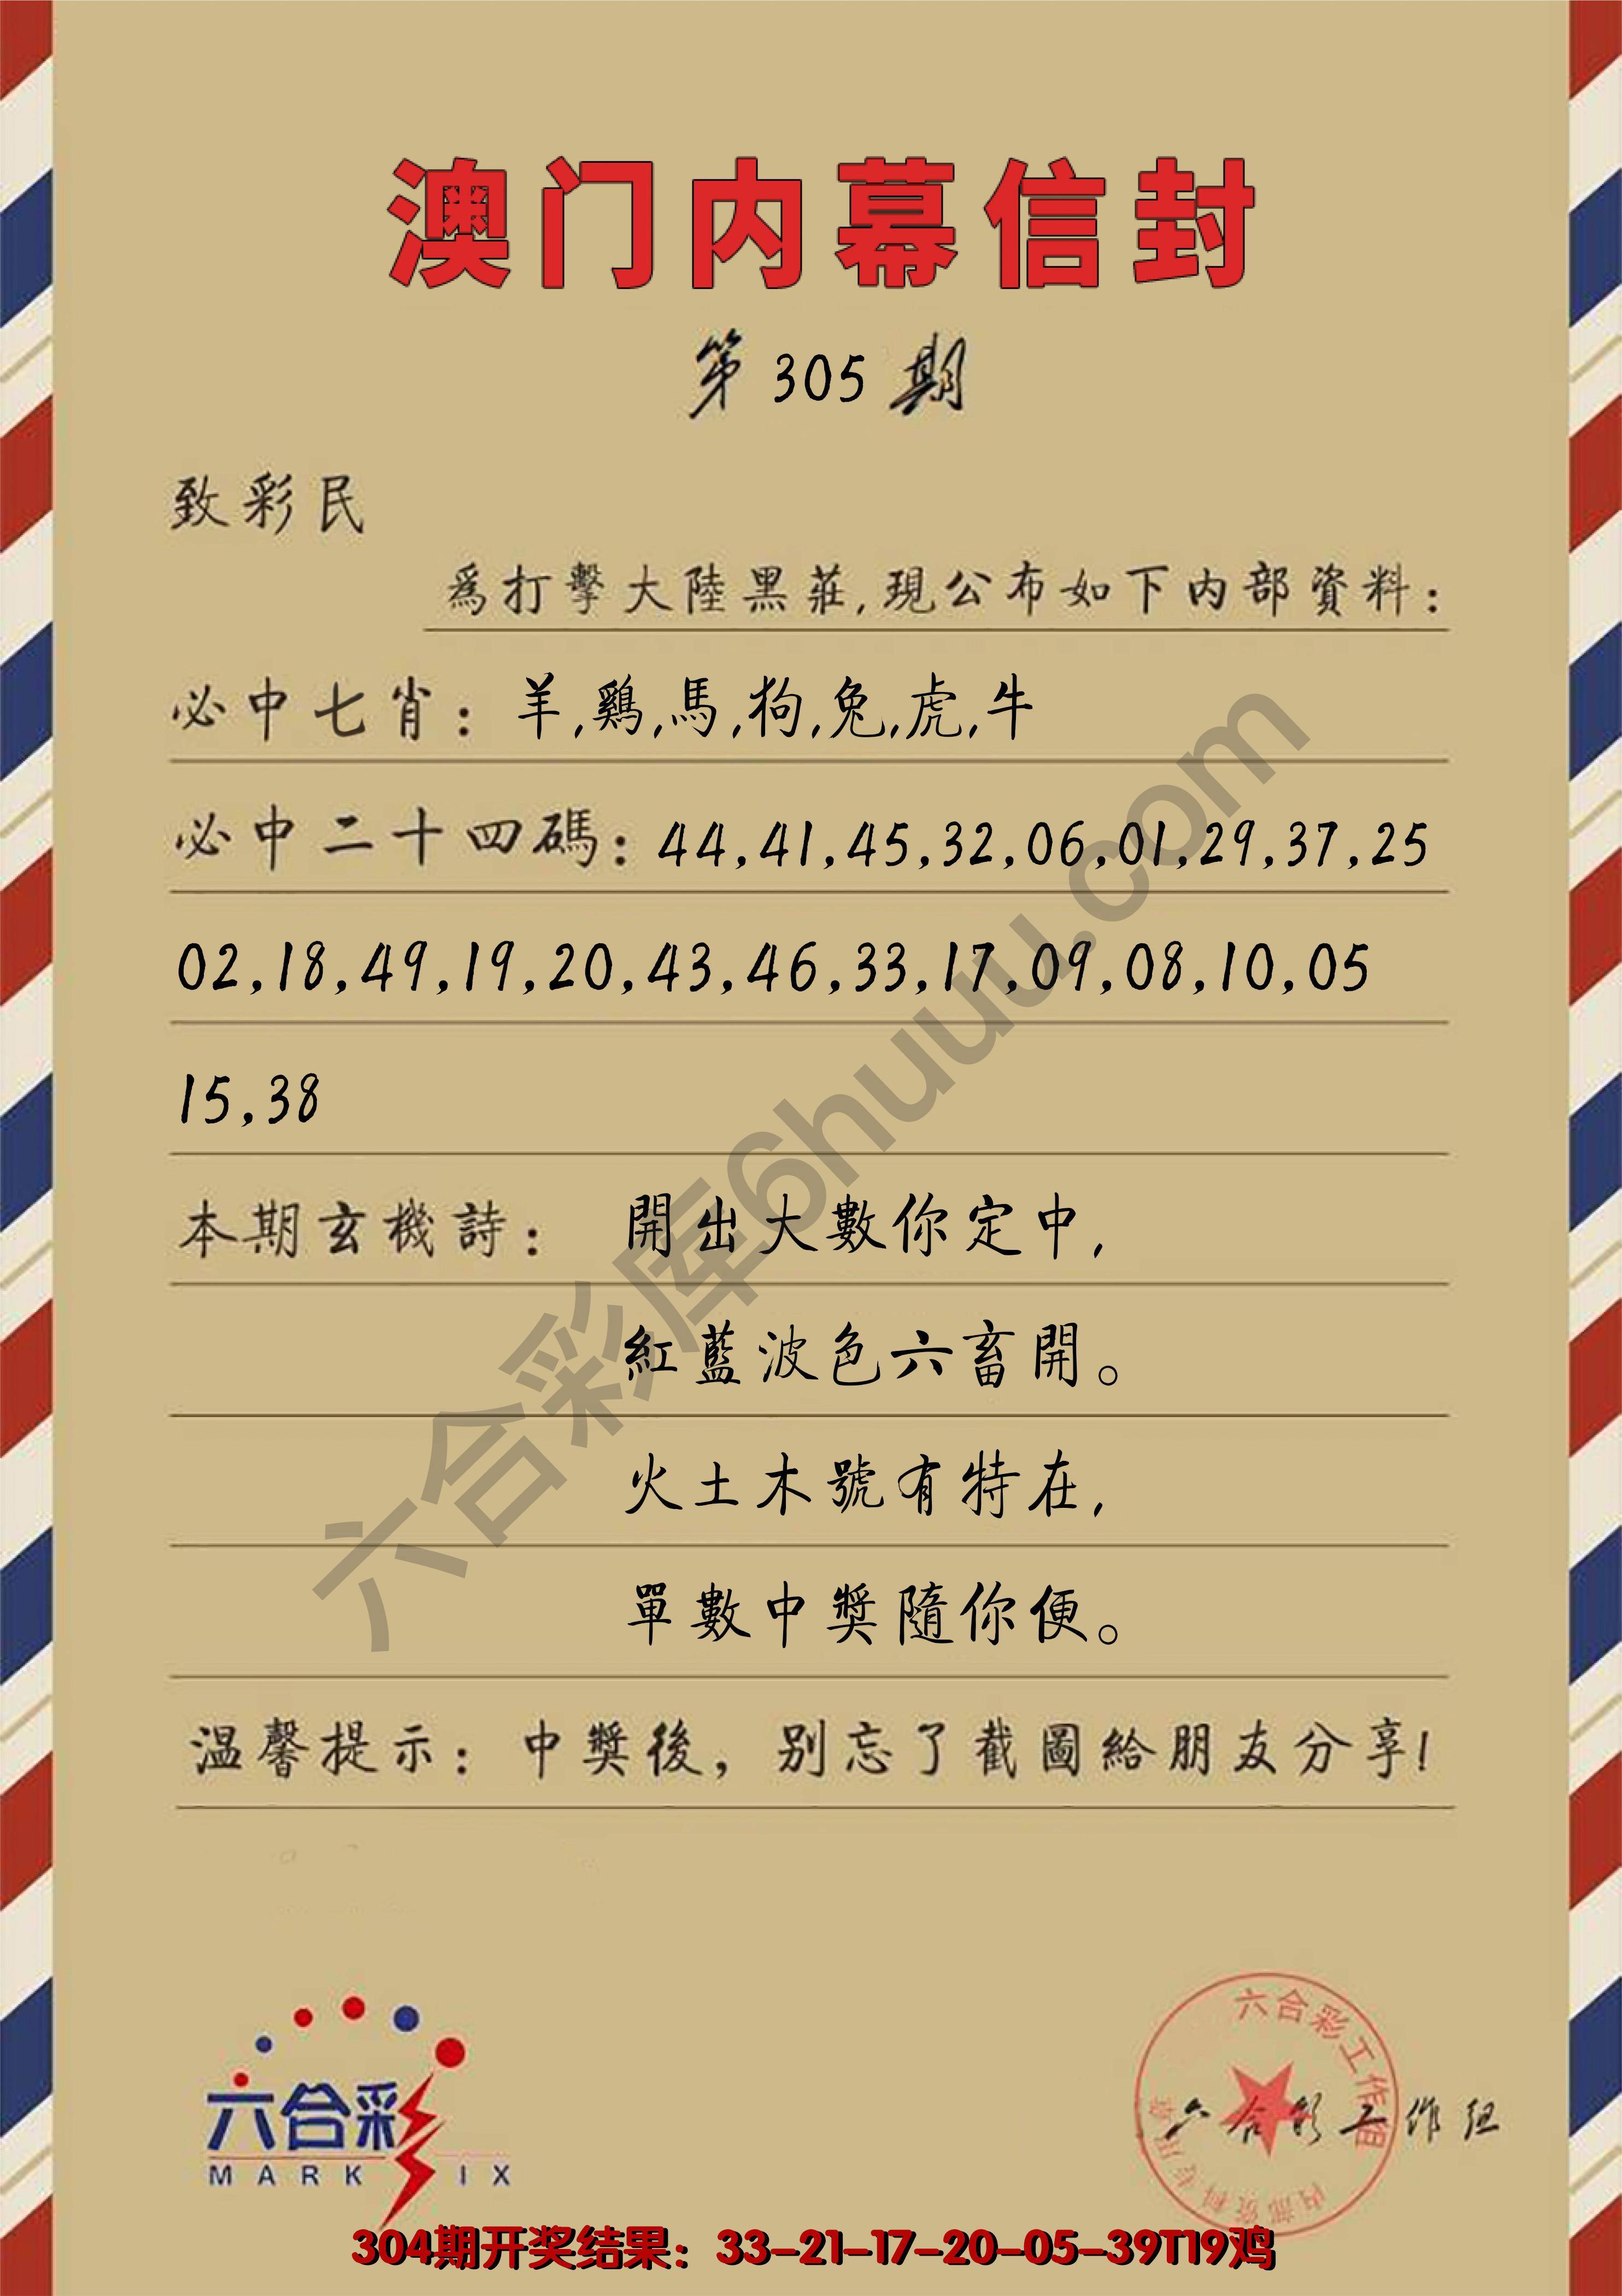 澳门内幕信封
第 305 期
致彩民
為打擊大陸黑莊,現公布如下内部資料:
必中七肖: 羊,鷄,馬,狗,兔,虎,牛
必中二十四碼: 44,41,45,32,06,01,29,37,25
02,18,49,19,20,43,46,33,17,09,08,10,05
15,38
本期玄機詩: 開出大數你定中,
紅藍波色六畜開。
火土木號有特在,
單數中獎隨你便。
温馨提示: 中獎後, 别忘了截圖給朋友分享!
六合彩库6huuu.com
六合彩
MARK IX
六合彩工作组
六合彩工作组
304期开奖结果: 33-21-17-20-05-39T19鸡